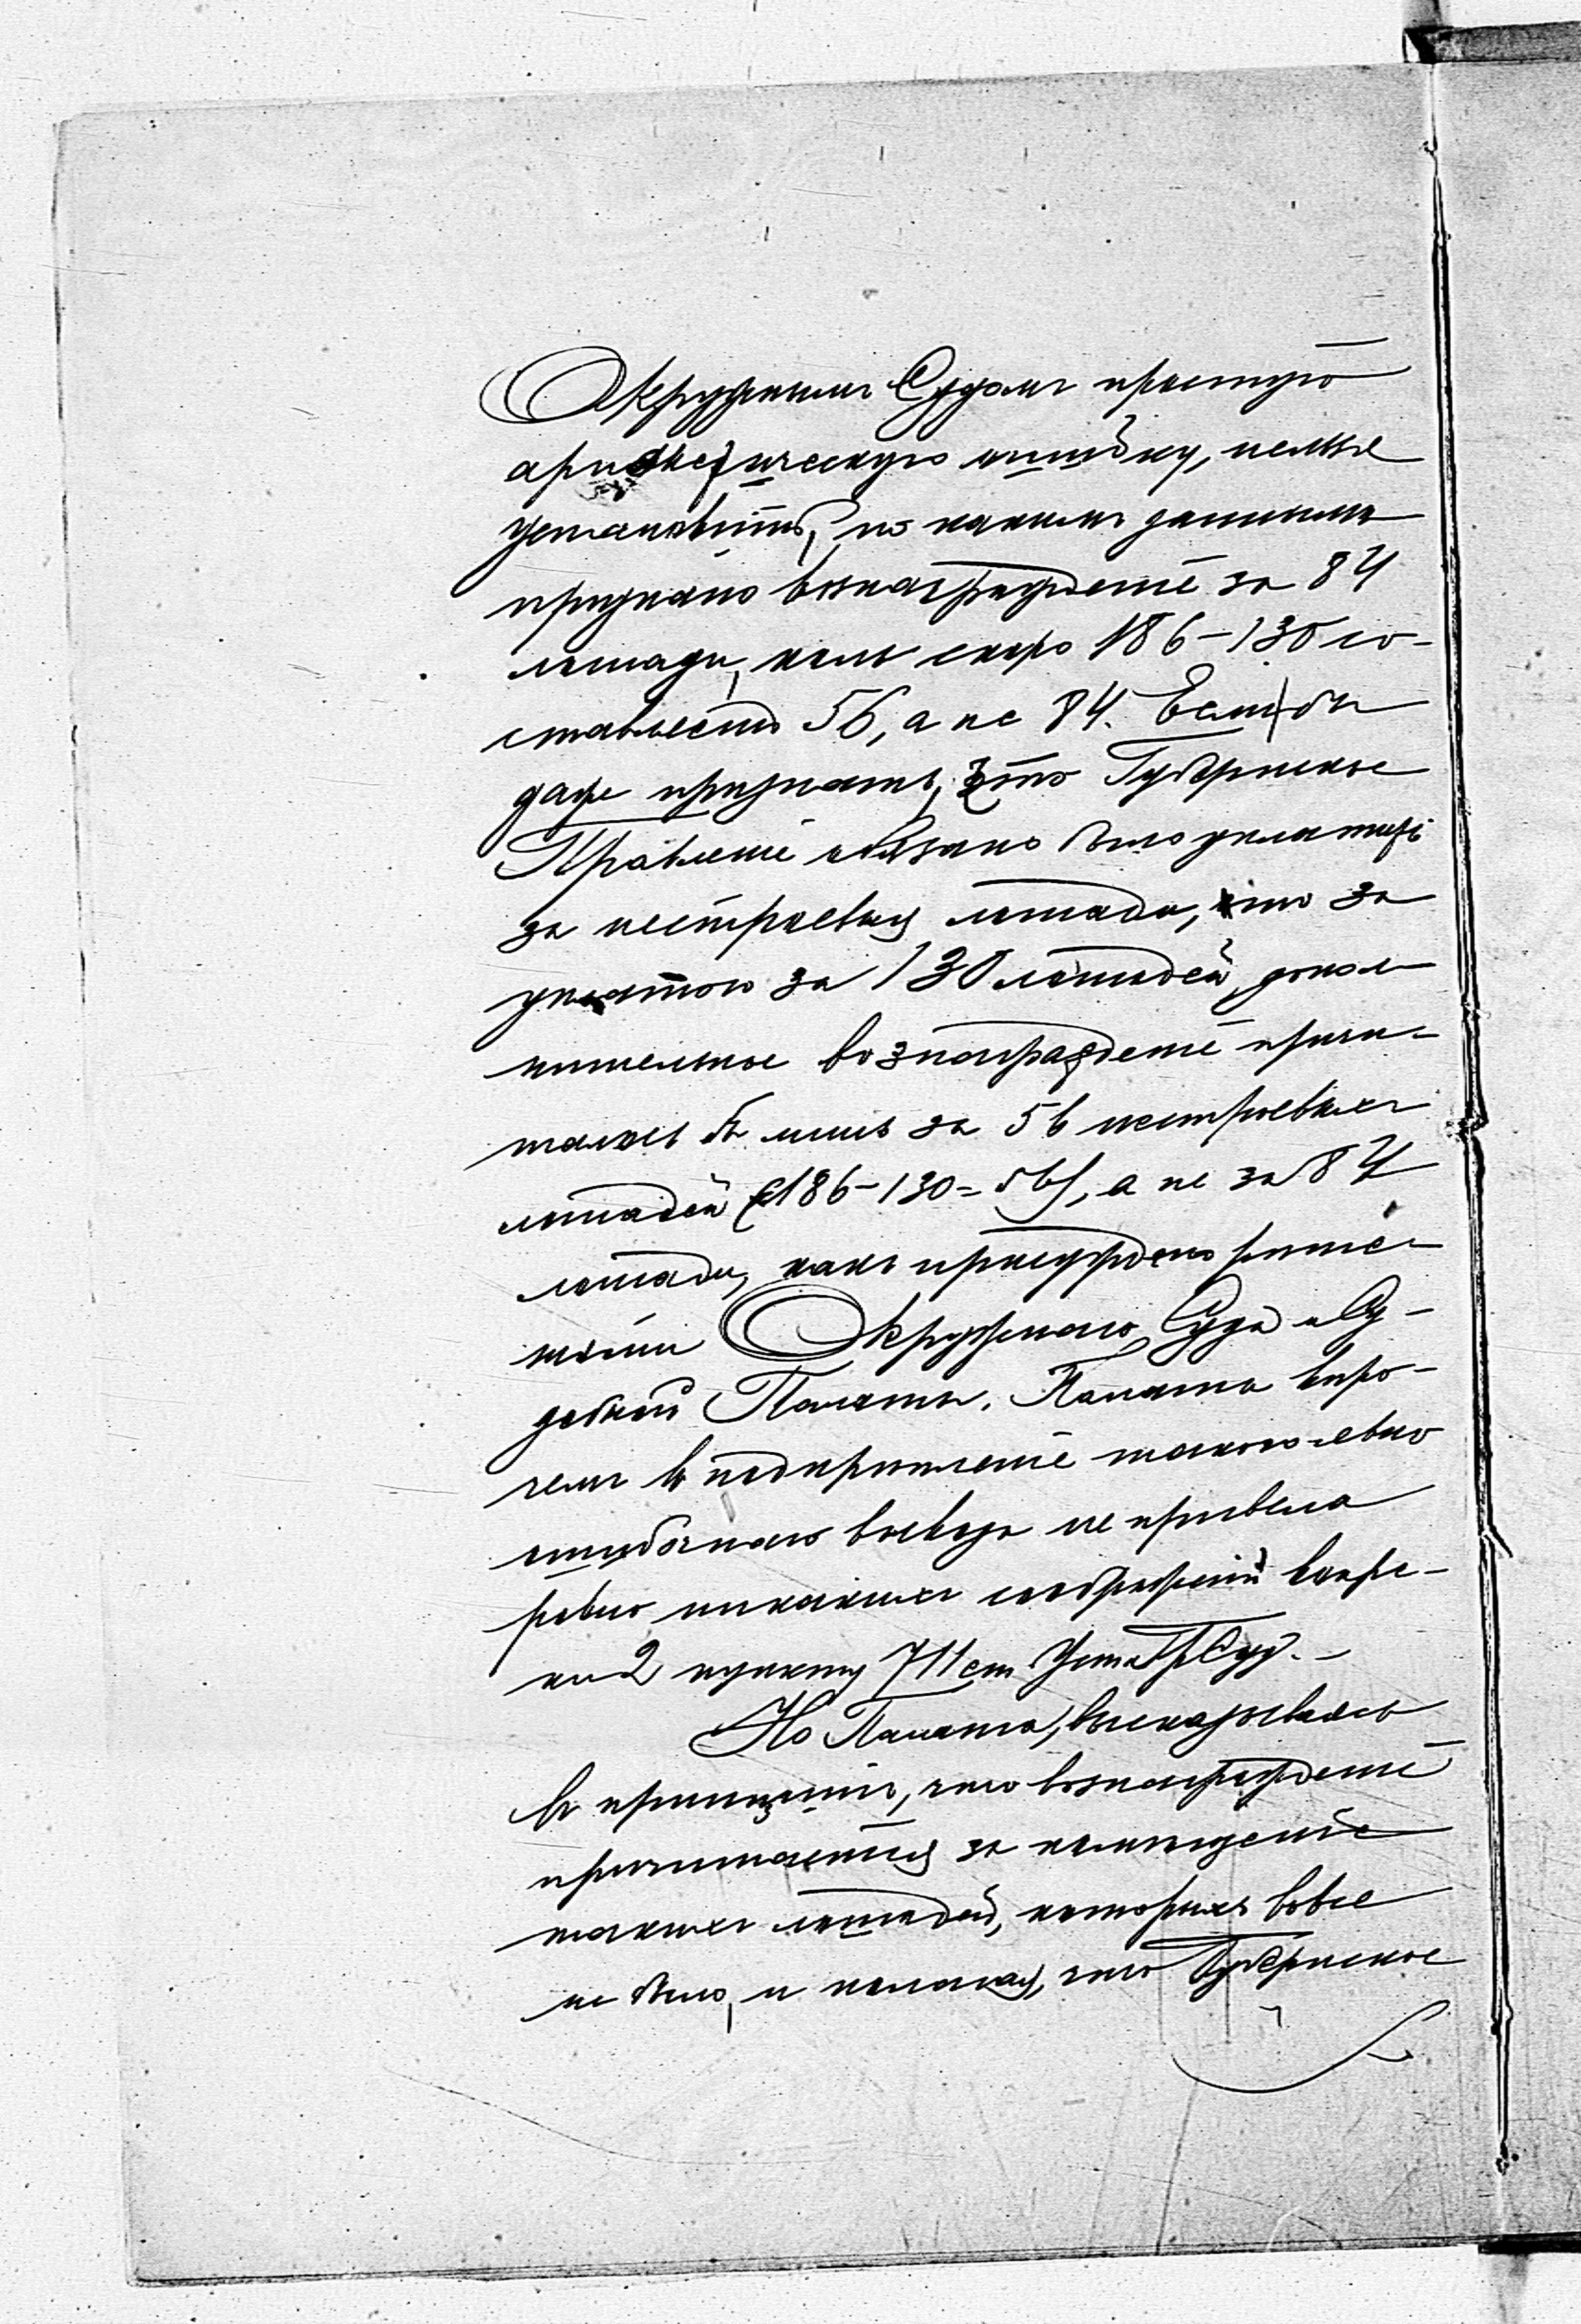 Окружнымъ Судомъ простую
ариѳметическую ошибку, нельзя
установить, по какимъ даннымъ
признано вознагражденіе за 84
лошади, коль скоро 186-130 со-
ставляетъ 56, а не 84. Если бы
даже признать, что Губернское
Правленіе обязано было уплатить
за нестроевыя лошади, то за
уплатою за 130 лошадей, допол-
нительное вознагражденіе причи-
талось бы лишь за 56 нестроевыхъ
лошадей (186-130=56), а не за 84
лошади, какъ присуждено рѣше-
ніями Окружнаго Суда и Су-
дебной Палаты. Палата впро-
чемъ въ подкрѣпленіе такого явно
ошибочнаго вывода не привела
ровно никакихъ соображеній вопре-
ки 2 пункту 711 ст. Уст. Гр. Суд. -
Но Палата, высказываясь
въ принципѣ, что вознагражденіе
причитается за
такихъ лошадей, которыхъ вовсе
не было, и полагая, что Губернское